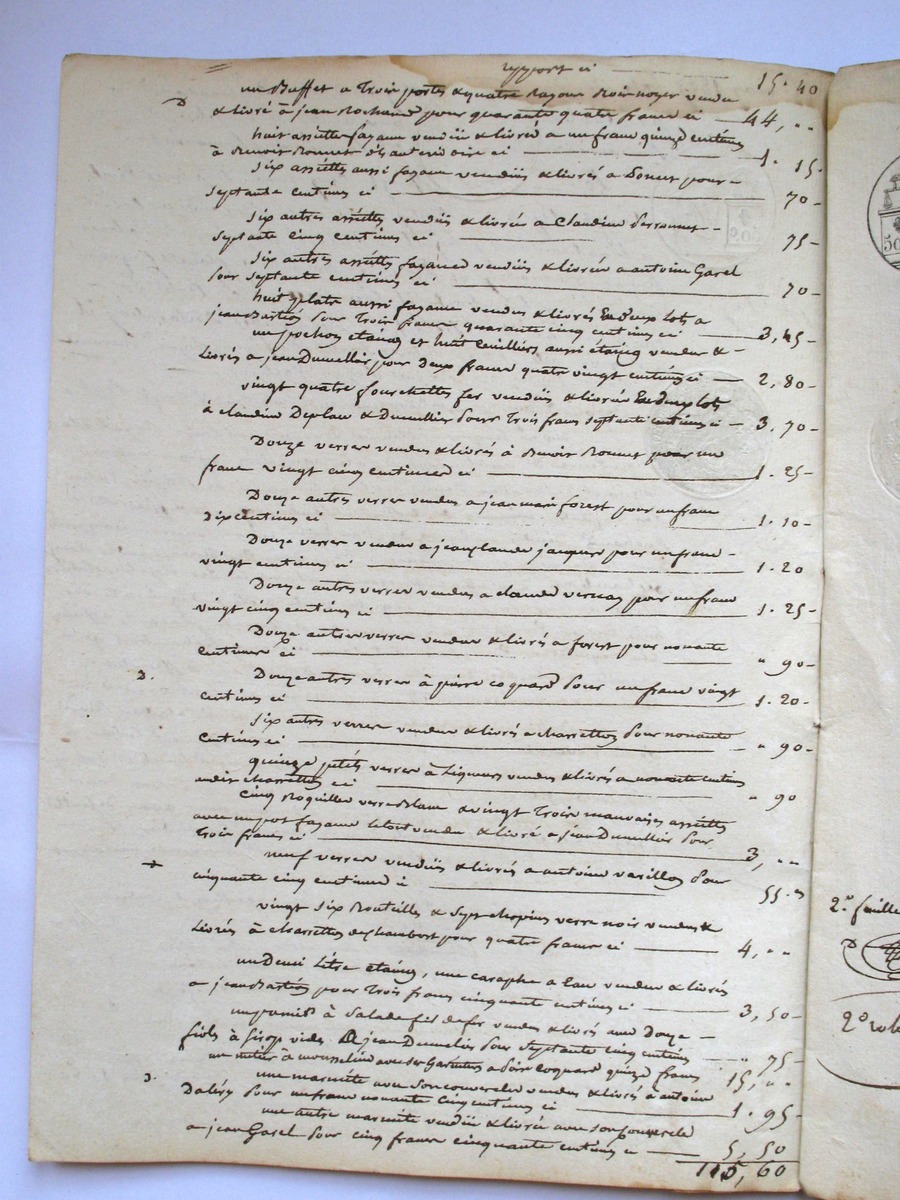 rapport ci 15. 40
un Buffet a trois portes & quatre Rayons Bois noyer vendu
& livré à jean Rochand pour quarante quatre francs ci 44, "
huit assiettes fayance vendües & livrées a un franc quinze centimes
à Benoit Bonnet ci 1. 15.
six assiettes aussi fayance vendües & livrées a Bonnet pour
septante centimes ci 70
six autres assiettes vendües & livrées a Claudine Perronnet
septante cinq centimes ci 75
six autres assiettes fayance vendües & livrées a antoine Garel
pour septante centimes ci 70
huit plats aussi fayance vendus & livrés En deux lots a
jean Bastion pour trois francs quarante cinq centimes ci 3, 45
un pochon étaing et huit Cuilliers aussi étaing vendus &
Livrés a jean Dumellier pour deux francs quatre vingt centimes ci 2, 80
vingt quatre fourchettes fer vendües & livrées En deux lots
à claudine Deplace & Dumellier pour trois francs septante centimes ci 3. 70
Douze verres vendus & livrés à Benoit Bonnet pour un
franc vingt cinq centimes ci 1. 25
Douze autres verres vendus a jean marie forest pour un franc
Dix centimes ci 1. 10
Douze verres vendus a jean claude jacques pour un franc
vingt centimes ci 1. 20
Douze autres verres vendus a claude pour un franc
vingt cinq centimes ci 1. 25
Douze autres verres vendus & livrés a forest pour nonante
centimes ci " 90
Douze autres verres à pierre coquard pour un franc vingt
centimes ci 1. 20
six autres verres vendus & livrés a charretton pour nonante
Centimes ci " 90
quinze petits verres à Liqueurs vendus & livrés a nonante centimes
audit charretton ci " 90
cinq Roquilles verre Blanc & vingt trois mauvaises assiettes
avec un pot fayance le tout vendu & livré a jean Dumellier pour
Trois francs ci 3, "
neuf verres vendües & livrés a antoine varillon pour
cinquante cinq centimes ci 55
vingt six Bouteilles & sept chopines verre noir vendus &
Livrés à charretton de chambost pour quatre francs ci 4, "
un Demi Litre étaing, une caraphe a Eau vendus & livrés
a jean Bastion pour Trois francs cinquante centimes ci 3, 50
un panier à Salade fil de fer vendu & livré avec Douze
fiols à sirop vides A jean Dumellier pour septante cinq centimes " 75
un métier à mousseline avec ses Garnitures a coquard quinze francs 15, "
une marmite avec son couvercle vendue & livrée à antoine
Daléry pour un franc nonante cinq centimes ci 1. 95
une autre marmite vendüe & livrée avec son couvercle
a jean Garel pour cinq francs cinquante centimes ci 5, 50
115, 60
2.e feuille
2.o